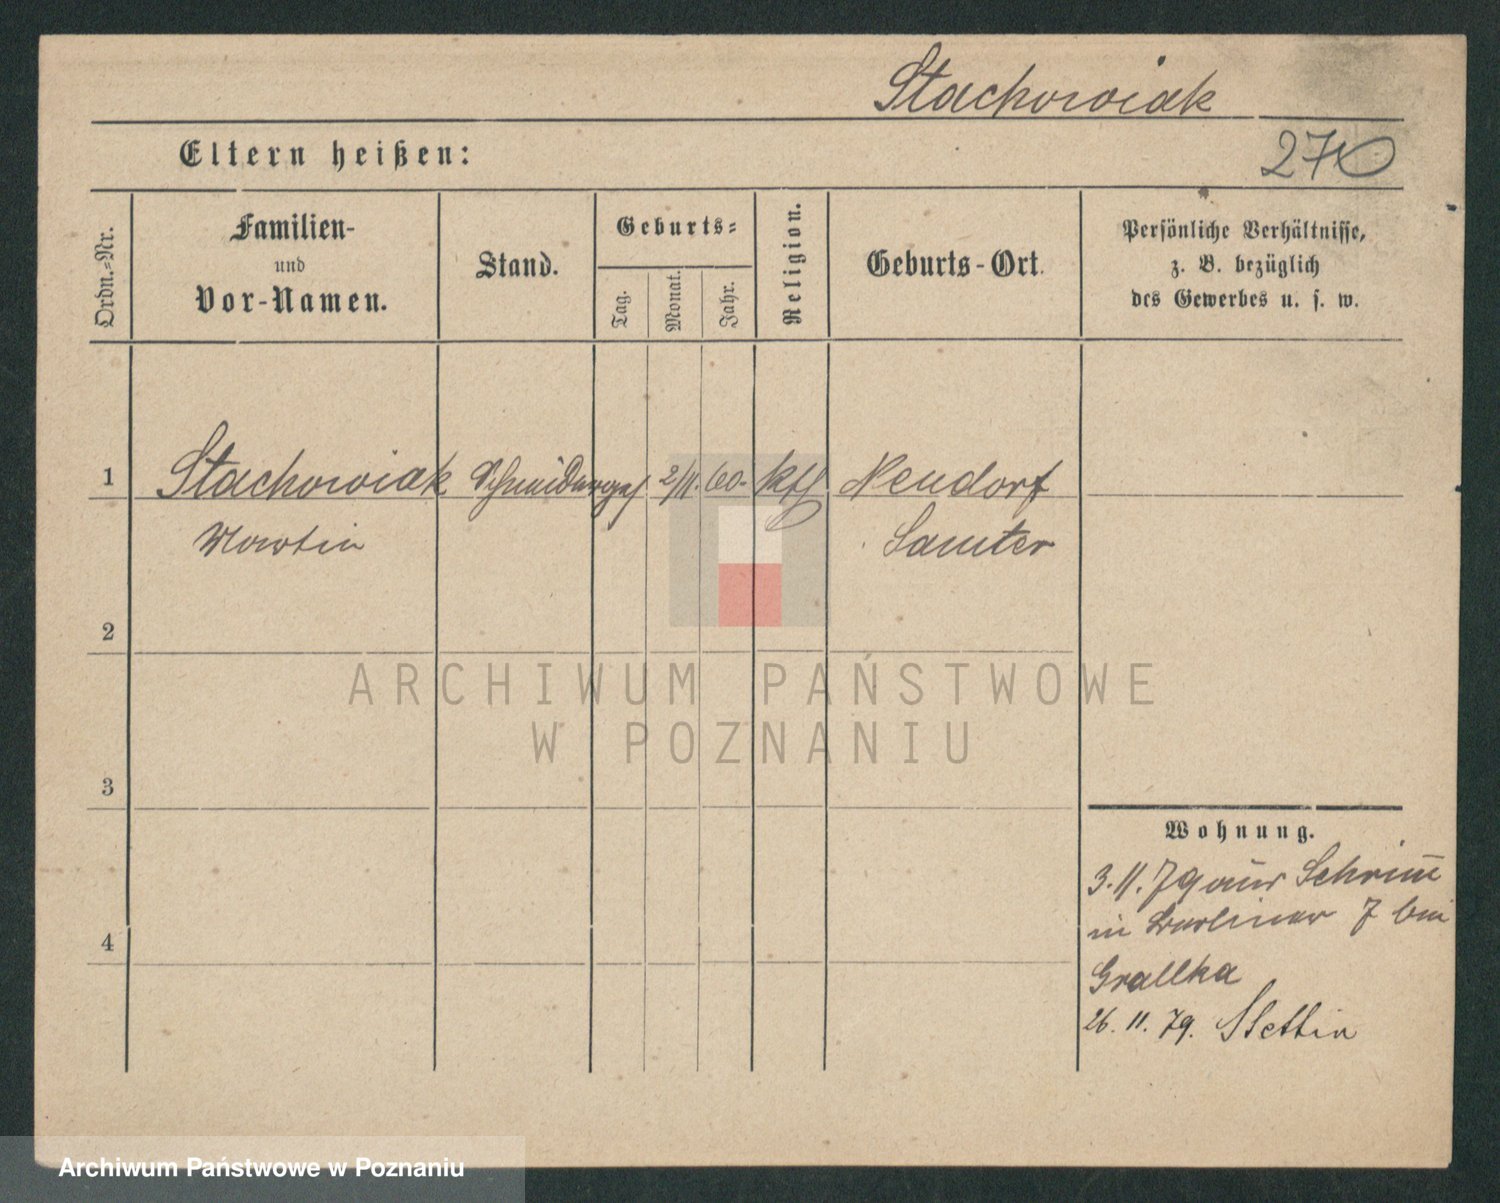 Stachowiak
270
Eltern heißen:
Ordn.-Nr.
Familien-
und
Vor-Namen.
Stand.
Geburts-
Tag.
Monat.
Jahr.
Religion.
Geburts-Ort.
Persönliche Verhältnisse,
z. B. bezüglich
des Gewerbes u. s. w.
1
Stachowiak Schneiderges 2/11. 60. kth Neudorf
Martin Samter
2
ARCHIWUM PAŃSTWOWE
W POZNANIU
3
Wohnung.
3. 11. 79 aus Schrimm
in Berliner 7 bei
4
Grallka
26. 11. 79. Stettin
Archiwum Państwowe w Poznaniu